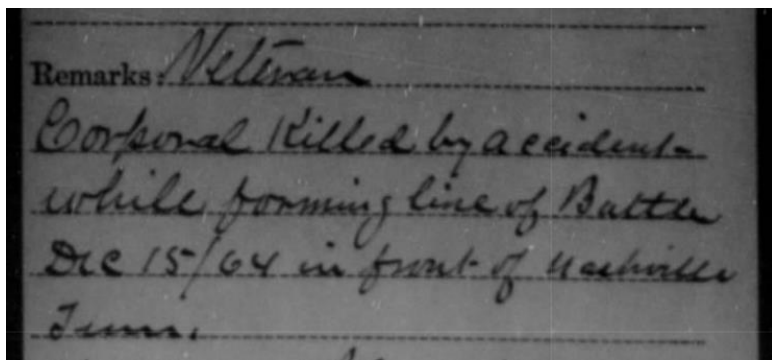 Remarks: Veteran
Corporal Killed by accident
while forming line of Battle
Dec 15/64 in front of Nashville
Tenn.